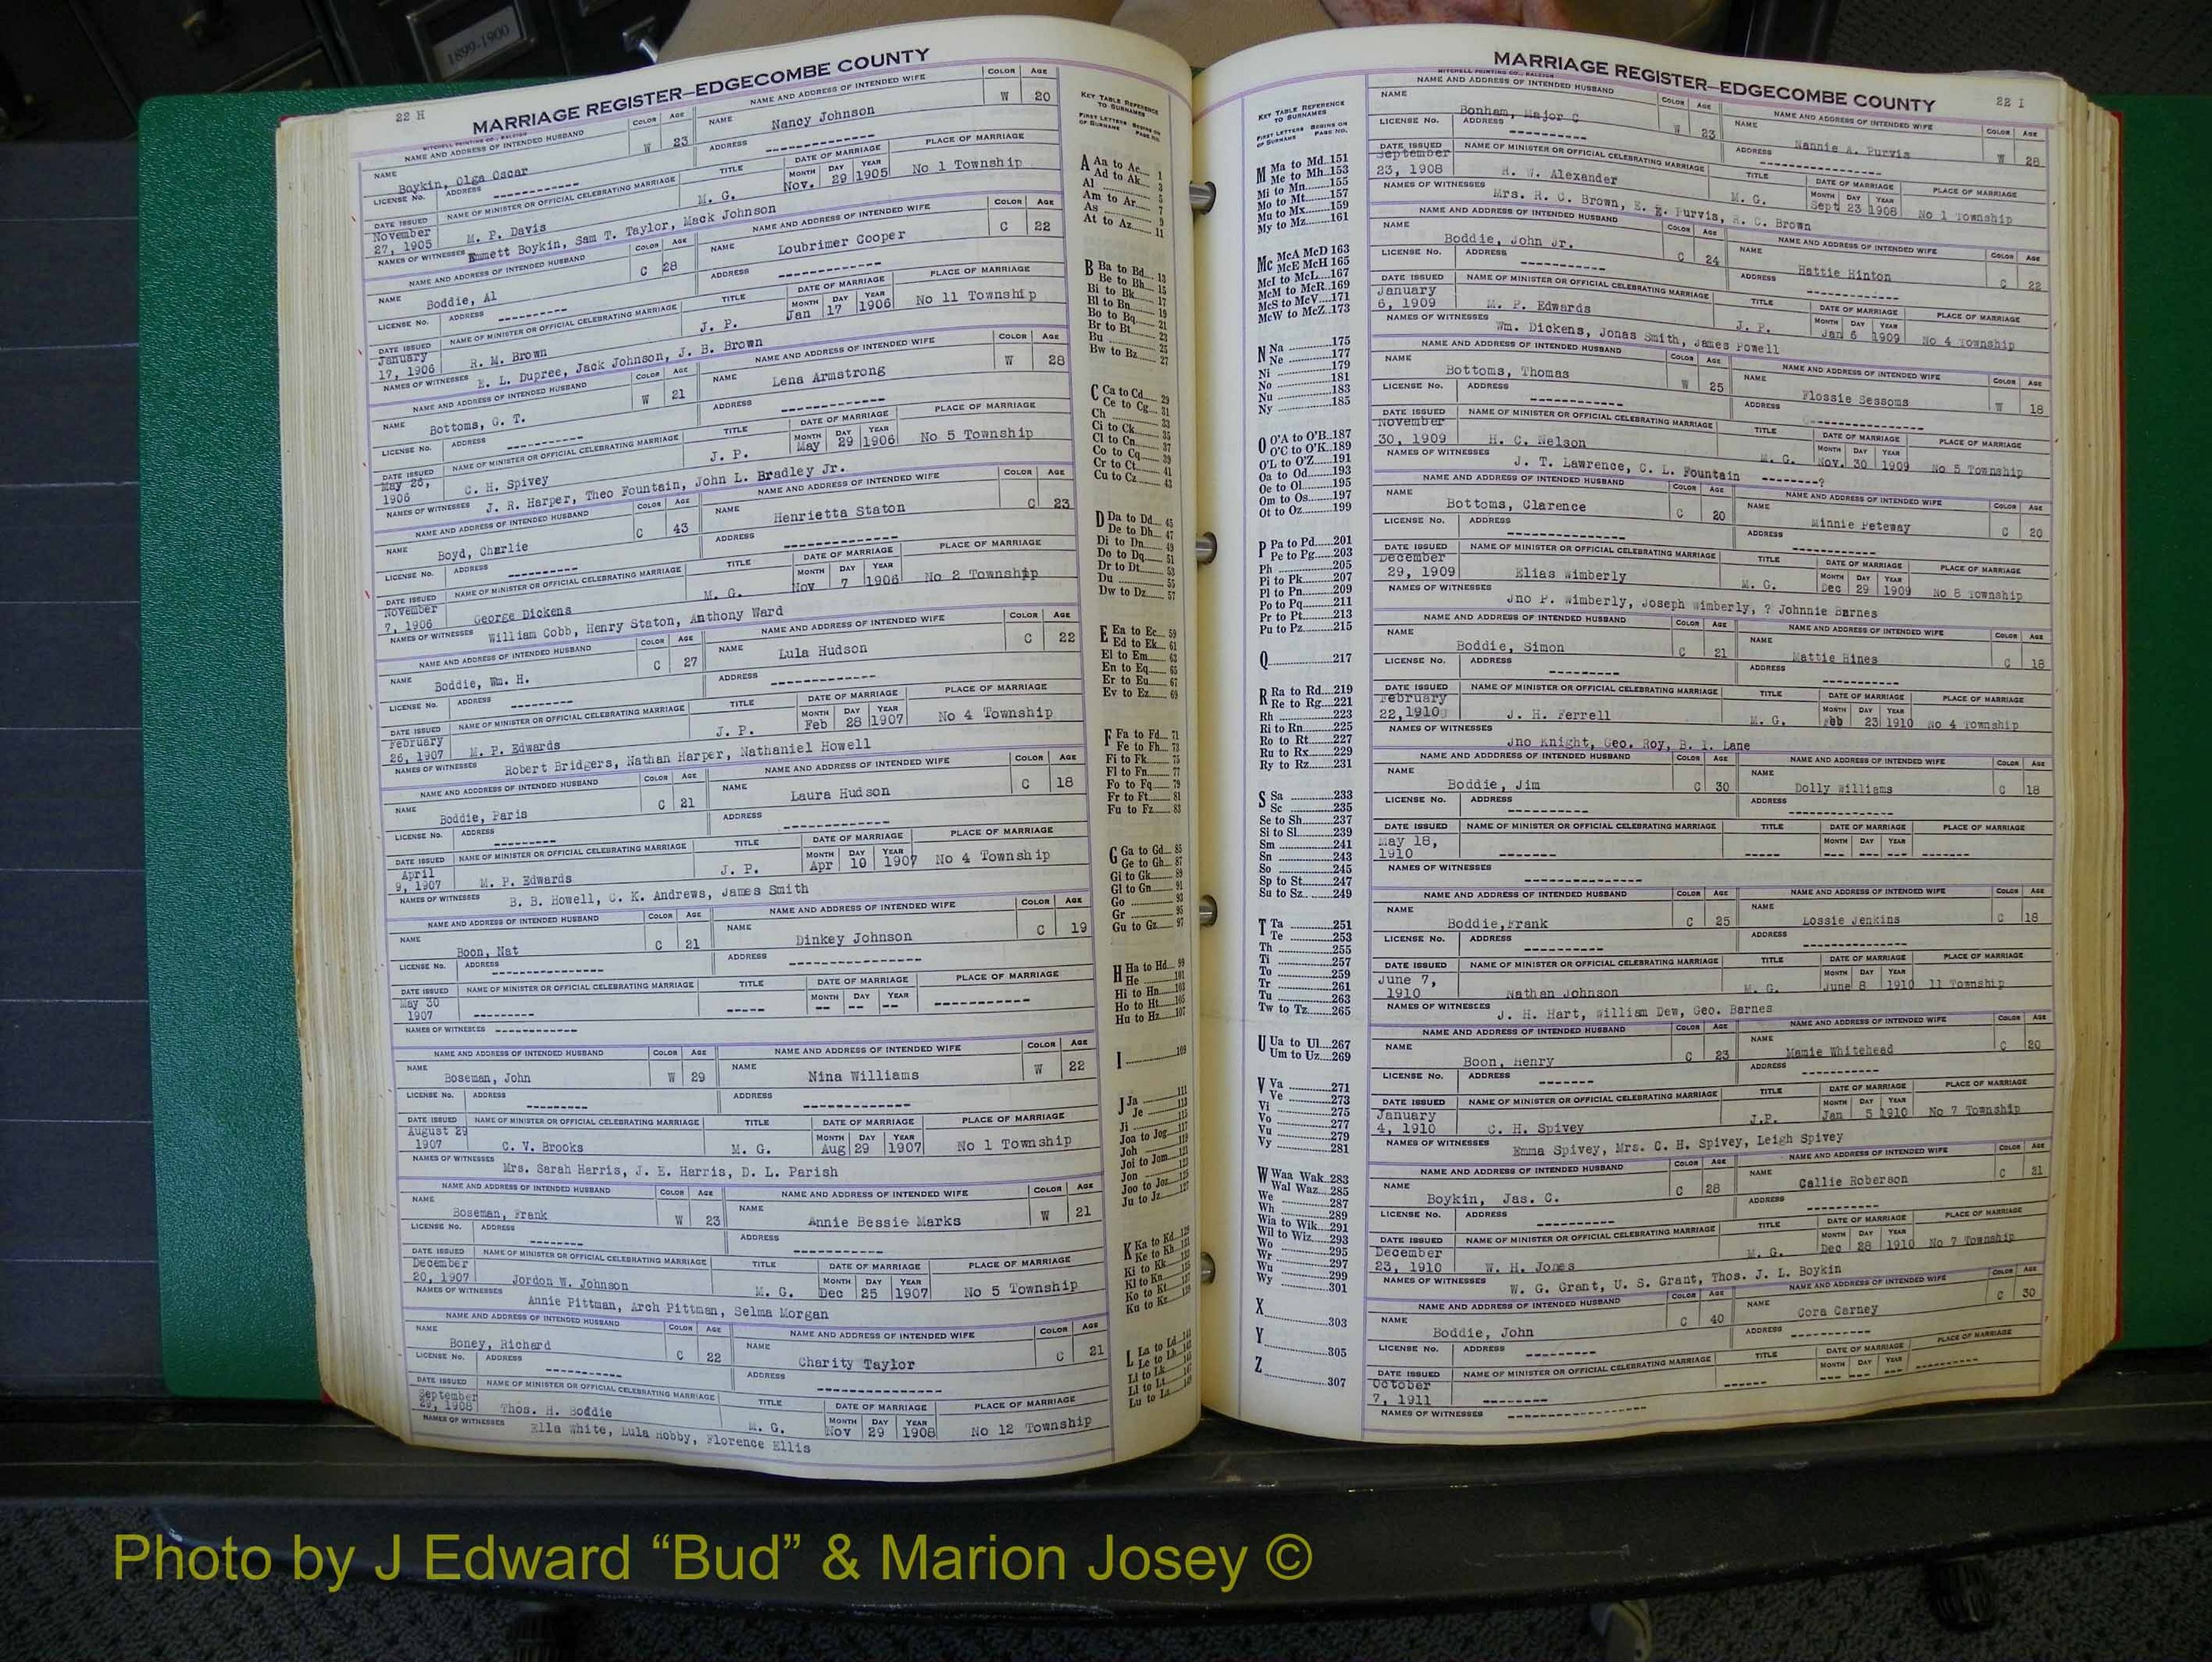 1899-1900
22 H
MARRIAGE REGISTER—EDGECOMBE COUNTY
MITCHELL PRINTING CO., RALEIGH
NAME AND ADDRESS OF INTENDED HUSBAND COLOR AGE NAME AND ADDRESS OF INTENDED WIFE COLOR AGE
NAME Boykin, Olga Oscar W 23 NAME Nancy Johnson W 20
LICENSE No. ADDRESS ------------ ADDRESS ------------
DATE ISSUED NAME OF MINISTER OR OFFICIAL CELEBRATING MARRIAGE TITLE DATE OF MARRIAGE PLACE OF MARRIAGE
MONTH DAY YEAR
November 27, 1905 M. P. Davis M. G. Nov. 29 1905 No 1 Township
NAMES OF WITNESSES Emmett Boykin, Sam T. Taylor, Mack Johnson
NAME AND ADDRESS OF INTENDED HUSBAND COLOR AGE NAME AND ADDRESS OF INTENDED WIFE COLOR AGE
NAME Boddie, Al C 28 NAME Loubrimer Cooper C 22
LICENSE No. ADDRESS ---------- ADDRESS ------------
DATE ISSUED NAME OF MINISTER OR OFFICIAL CELEBRATING MARRIAGE TITLE DATE OF MARRIAGE PLACE OF MARRIAGE
MONTH DAY YEAR
January 17, 1906 R. M. Brown J. P. Jan 17 1906 No 11 Township
NAMES OF WITNESSES E. L. Dupree, Jack Johnson, J. B. Brown
NAME AND ADDRESS OF INTENDED HUSBAND COLOR AGE NAME AND ADDRESS OF INTENDED WIFE COLOR AGE
NAME Bottoms, G. T. W 21 NAME Lena Armstrong W 28
LICENSE No. ADDRESS ---------- ADDRESS ------------
DATE ISSUED NAME OF MINISTER OR OFFICIAL CELEBRATING MARRIAGE TITLE DATE OF MARRIAGE PLACE OF MARRIAGE
MONTH DAY YEAR
May 26, 1906 C. H. Spivey J. P. May 29 1906 No 5 Township
NAMES OF WITNESSES J. R. Harper, Theo Fountain, John L. Bradley Jr.
NAME AND ADDRESS OF INTENDED HUSBAND COLOR AGE NAME AND ADDRESS OF INTENDED WIFE COLOR AGE
NAME Boyd, Charlie C 43 NAME Henrietta Staton C 23
LICENSE No. ADDRESS ---------- ADDRESS ------------
DATE ISSUED NAME OF MINISTER OR OFFICIAL CELEBRATING MARRIAGE TITLE DATE OF MARRIAGE PLACE OF MARRIAGE
MONTH DAY YEAR
November 7, 1906 George Dickens M. G. Nov 7 1906 No 2 Township
NAMES OF WITNESSES William Cobb, Henry Staton, Anthony Ward
NAME AND ADDRESS OF INTENDED HUSBAND COLOR AGE NAME AND ADDRESS OF INTENDED WIFE COLOR AGE
NAME Boddie, Wm. H. C 27 NAME Lula Hudson C 22
LICENSE No. ADDRESS --------- ADDRESS ------------
DATE ISSUED NAME OF MINISTER OR OFFICIAL CELEBRATING MARRIAGE TITLE DATE OF MARRIAGE PLACE OF MARRIAGE
MONTH DAY YEAR
February 26, 1907 M. P. Edwards J. P. Feb 28 1907 No 4 Township
NAMES OF WITNESSES Robert Bridgers, Nathan Harper, Nathaniel Howell
NAME AND ADDRESS OF INTENDED HUSBAND COLOR AGE NAME AND ADDRESS OF INTENDED WIFE COLOR AGE
NAME Boddie, Paris C 21 NAME Laura Hudson C 18
LICENSE No. ADDRESS --------- ADDRESS ------------
DATE ISSUED NAME OF MINISTER OR OFFICIAL CELEBRATING MARRIAGE TITLE DATE OF MARRIAGE PLACE OF MARRIAGE
MONTH DAY YEAR
April 9, 1907 M. P. Edwards J. P. Apr 10 1907 No 4 Township
NAMES OF WITNESSES B. B. Howell, C. K. Andrews, James Smith
NAME AND ADDRESS OF INTENDED HUSBAND COLOR AGE NAME AND ADDRESS OF INTENDED WIFE COLOR AGE
NAME Boon, Nat C 21 NAME Dinkey Johnson C 19
LICENSE No. ADDRESS ---------------- ADDRESS ---------------
DATE ISSUED NAME OF MINISTER OR OFFICIAL CELEBRATING MARRIAGE TITLE DATE OF MARRIAGE PLACE OF MARRIAGE
MONTH DAY YEAR
May 30 1907 --------- ----- -- -- -- -----------
NAMES OF WITNESSES ------------
NAME AND ADDRESS OF INTENDED HUSBAND COLOR AGE NAME AND ADDRESS OF INTENDED WIFE COLOR AGE
NAME Boseman, John W 29 NAME Nina Williams W 22
LICENSE No. ADDRESS --------- ADDRESS ------------
DATE ISSUED NAME OF MINISTER OR OFFICIAL CELEBRATING MARRIAGE TITLE DATE OF MARRIAGE PLACE OF MARRIAGE
MONTH DAY YEAR
August 29 1907 C. V. Brooks M. G. Aug 29 1907 No 1 Township
NAMES OF WITNESSES Mrs. Sarah Harris, J. E. Harris, D. L. Parish
NAME AND ADDRESS OF INTENDED HUSBAND COLOR AGE NAME AND ADDRESS OF INTENDED WIFE COLOR AGE
NAME Boseman, Frank W 23 NAME Annie Bessie Marks W 21
LICENSE No. ADDRESS --------- ADDRESS ------------
DATE ISSUED NAME OF MINISTER OR OFFICIAL CELEBRATING MARRIAGE TITLE DATE OF MARRIAGE PLACE OF MARRIAGE
MONTH DAY YEAR
December 20, 1907 Jordon W. Johnson M. G. Dec 25 1907 No 5 Township
NAMES OF WITNESSES Annie Pittman, Arch Pittman, Selma Morgan
NAME AND ADDRESS OF INTENDED HUSBAND COLOR AGE NAME AND ADDRESS OF INTENDED WIFE COLOR AGE
NAME Boney, Richard C 22 NAME Charity Taylor C 21
LICENSE No. ADDRESS ---------- ADDRESS ------------
DATE ISSUED NAME OF MINISTER OR OFFICIAL CELEBRATING MARRIAGE TITLE DATE OF MARRIAGE PLACE OF MARRIAGE
MONTH DAY YEAR
September 29, 1908 Thos. H. Boddie M. G. Nov 29 1908 No 12 Township
NAMES OF WITNESSES Ella White, Lula Hobby, Florence Ellis
KEY TABLE REFERENCE TO SURNAMES
FIRST LETTERS OF SURNAME BEGINS ON PAGE NO.
A Aa to Ac 1
Ad to Ak 3
Al 5
Am to Ar 7
As 9
At to Az 11
B Ba to Bd 13
Be to Bh 15
Bi to Bk 17
Bl to Bn 19
Bo to Bq 21
Br to Bt 23
Bu 25
Bw to Bz 27
C Ca to Cd 29
Ce to Cg 31
Ch 33
Ci to Ck 35
Cl to Cn 37
Co to Cq 39
Cr to Ct 41
Cu to Cz 43
D Da to Dd 45
De to Dh 47
Di to Dn 49
Do to Dq 51
Dr to Dt 53
Du 55
Dw to Dz 57
E Ea to Ec 59
Ed to Ek 61
El to Em 63
En to Eq 65
Er to Eu 67
Ev to Ez 69
F Fa to Fd 71
Fe to Fh 73
Fi to Fk 75
Fl to Fn 77
Fo to Fq 79
Fr to Ft 81
Fu to Fz 83
G Ga to Gd 85
Ge to Gh 87
Gi to Gk 89
Gl to Gn 91
Go 93
Gr 95
Gu to Gz 97
H Ha to Hd 99
He 101
Hi to Hn 103
Ho to Ht 105
Hu to Hz 107
I 109
J Ja 111
Je 113
Ji 115
Joa to Jog 117
Joh 119
Joi to Jom 121
Jon
Joo to Joz
Ju to Jz 127
K Ka to Kd
Ke to Kh
Ki to Kk
Kl to Kn
Ko to Kt
Ku to Kz
L La to Ld
Le to Lh
Li to Lk
Ll to Lt
Lu to Lz
22 I
MARRIAGE REGISTER—EDGECOMBE COUNTY
MITCHELL PRINTING CO., RALEIGH
NAME AND ADDRESS OF INTENDED HUSBAND COLOR AGE NAME AND ADDRESS OF INTENDED WIFE COLOR AGE
NAME Bonham, Major C W 23 NAME Nannie A. Purvis W 28
LICENSE No. ADDRESS ---------- ADDRESS ------------
DATE ISSUED NAME OF MINISTER OR OFFICIAL CELEBRATING MARRIAGE TITLE DATE OF MARRIAGE PLACE OF MARRIAGE
MONTH DAY YEAR
September 23, 1908 H. W. Alexander M. G. Sept 23 1908 No 1 Township
NAMES OF WITNESSES Mrs. R. C. Brown, E. E. Purvis, R. C. Brown
NAME AND ADDRESS OF INTENDED HUSBAND COLOR AGE NAME AND ADDRESS OF INTENDED WIFE COLOR AGE
NAME Boddie, John Jr. C 24 NAME Hattie Hinton C 22
LICENSE No. ADDRESS ----------- ADDRESS ------------
DATE ISSUED NAME OF MINISTER OR OFFICIAL CELEBRATING MARRIAGE TITLE DATE OF MARRIAGE PLACE OF MARRIAGE
MONTH DAY YEAR
January 6, 1909 M. P. Edwards J. P. Jan 6 1909 No 4 Township
NAMES OF WITNESSES Wm. Dickens, Jonas Smith, James Powell
NAME AND ADDRESS OF INTENDED HUSBAND COLOR AGE NAME AND ADDRESS OF INTENDED WIFE COLOR AGE
NAME Bottoms, Thomas W 25 NAME Flossie Sessoms W 18
LICENSE No. ADDRESS ----------- ADDRESS ---------------
DATE ISSUED NAME OF MINISTER OR OFFICIAL CELEBRATING MARRIAGE TITLE DATE OF MARRIAGE PLACE OF MARRIAGE
MONTH DAY YEAR
November 30, 1909 H. C. Nelson M. G. Nov. 30 1909 No 5 Township
NAMES OF WITNESSES J. T. Lawrence, C. L. Fountain --------?
NAME AND ADDRESS OF INTENDED HUSBAND COLOR AGE NAME AND ADDRESS OF INTENDED WIFE COLOR AGE
NAME Bottoms, Clarence C 20 NAME Minnie Peteway C 20
LICENSE No. ADDRESS ----------- ADDRESS -----------
DATE ISSUED NAME OF MINISTER OR OFFICIAL CELEBRATING MARRIAGE TITLE DATE OF MARRIAGE PLACE OF MARRIAGE
MONTH DAY YEAR
December 29, 1909 Elias Wimberly M. G. Dec 29 1909 No 8 Township
NAMES OF WITNESSES Jno P. Wimberly, Joseph Wimberly, ? Johnnie Barnes
NAME AND ADDRESS OF INTENDED HUSBAND COLOR AGE NAME AND ADDRESS OF INTENDED WIFE COLOR AGE
NAME Boddie, Simon C 21 NAME Mattie Hines C 18
LICENSE No. ADDRESS ---------- ADDRESS ------------
DATE ISSUED NAME OF MINISTER OR OFFICIAL CELEBRATING MARRIAGE TITLE DATE OF MARRIAGE PLACE OF MARRIAGE
MONTH DAY YEAR
February 22, 1910 J. H. Ferrell M. G. Feb 23 1910 No 4 Township
NAMES OF WITNESSES Jno Knight, Geo. Roy, B. I. Lane
NAME AND ADDRESS OF INTENDED HUSBAND COLOR AGE NAME AND ADDRESS OF INTENDED WIFE COLOR AGE
NAME Boddie, Jim C 30 NAME Dolly Williams C 18
LICENSE No. ADDRESS ----------- ADDRESS ---------------
DATE ISSUED NAME OF MINISTER OR OFFICIAL CELEBRATING MARRIAGE TITLE DATE OF MARRIAGE PLACE OF MARRIAGE
MONTH DAY YEAR
May 18, 1910 -------- ----- --- --- --- -------
NAMES OF WITNESSES ----------------
NAME AND ADDRESS OF INTENDED HUSBAND COLOR AGE NAME AND ADDRESS OF INTENDED WIFE COLOR AGE
NAME Boddie,Frank C 25 NAME Lossie Jenkins C 18
LICENSE No. ADDRESS ----------- ADDRESS ---------------
DATE ISSUED NAME OF MINISTER OR OFFICIAL CELEBRATING MARRIAGE TITLE DATE OF MARRIAGE PLACE OF MARRIAGE
MONTH DAY YEAR
June 7, 1910 Nathan Johnson M. G. June 8 1910 11 Township
NAMES OF WITNESSES J. H. Hart, William Dew, Geo. Barnes
NAME AND ADDRESS OF INTENDED HUSBAND COLOR AGE NAME AND ADDRESS OF INTENDED WIFE COLOR AGE
NAME Boon, Henry C 23 NAME Mamie Whitehead C 20
LICENSE No. ADDRESS ------- ADDRESS ------------
DATE ISSUED NAME OF MINISTER OR OFFICIAL CELEBRATING MARRIAGE TITLE DATE OF MARRIAGE PLACE OF MARRIAGE
MONTH DAY YEAR
January 4, 1910 C. H. Spivey J.P. Jan 5 1910 No 7 Township
NAMES OF WITNESSES Emma Spivey, Mrs. C. H. Spivey, Leigh Spivey
NAME AND ADDRESS OF INTENDED HUSBAND COLOR AGE NAME AND ADDRESS OF INTENDED WIFE COLOR AGE
NAME Boykin, Jas. C. C 28 NAME Callie Roberson C 21
LICENSE No. ADDRESS ---------- ADDRESS ------------
DATE ISSUED NAME OF MINISTER OR OFFICIAL CELEBRATING MARRIAGE TITLE DATE OF MARRIAGE PLACE OF MARRIAGE
MONTH DAY YEAR
December 23, 1910 W. H. Jones M. G. Dec 28 1910 No 7 Township
NAMES OF WITNESSES W. G. Grant, U. S. Grant, Thos. J. L. Boykin
NAME AND ADDRESS OF INTENDED HUSBAND COLOR AGE NAME AND ADDRESS OF INTENDED WIFE COLOR AGE
NAME Boddie, John C 40 NAME Cora Carney C 30
LICENSE No. ADDRESS ---------- ADDRESS -----------
DATE ISSUED NAME OF MINISTER OR OFFICIAL CELEBRATING MARRIAGE TITLE DATE OF MARRIAGE PLACE OF MARRIAGE
MONTH DAY YEAR
October 7, 1911 --------- ------ --- --- --- ----------
NAMES OF WITNESSES -------------------
KEY TABLE REFERENCE TO SURNAMES
FIRST LETTERS OF SURNAME BEGINS ON PAGE NO.
M Ma to Md 151
Me to Mh 153
Mi to Mn 155
Mo to Mt 157
Mu to Mx 159
My to Mz 161
Mc McA McD 163
McE McH 165
McI to McL 167
McM to McR 169
McS to McV 171
McW to McZ 173
N Na 175
Ne 177
Ni 179
No 181
Nu 183
Ny 185
O O'A to O'B 187
O'C to O'K 189
O'L to O'Z 191
Oa to Od 193
Oe to Ol 195
Om to Os 197
Ot to Oz 199
P Pa to Pd 201
Pe to Pg 203
Ph 205
Pi to Pk 207
Pl to Pn 209
Po to Pq 211
Pr to Pt 213
Pu to Pz 215
Q 217
R Ra to Rd 219
Re to Rg 221
Rh 223
Ri to Rn 225
Ro to Rt 227
Ru to Rx 229
Ry to Rz 231
S Sa 233
Sc 235
Se to Sh 237
Si to Sl 239
Sm 241
Sn 243
So 245
Sp to St 247
Su to Sz 249
T Ta 251
Te 253
Th 255
Ti 257
To 259
Tr 261
Tu 263
Tw to Tz 265
U Ua to Ul 267
Um to Uz 269
V Va 271
Ve 273
Vi 275
Vo 277
Vu 279
Vy 281
W Waa Wak 283
Wal Waz 285
We 287
Wh 289
Wia to Wik 291
Wil to Wiz 293
Wo 295
Wr 297
Wu 299
Wy 301
X 303
Y 305
Z 307
Photo by J Edward “Bud” & Marion Josey ©